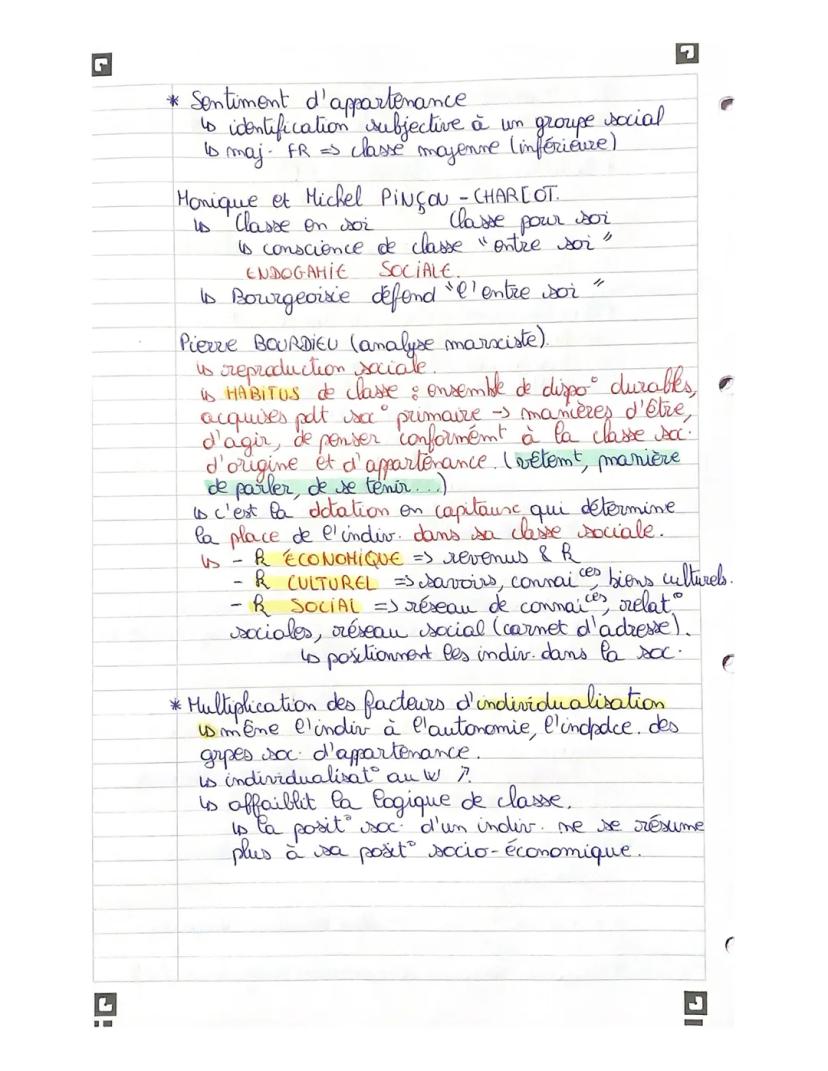 * Sentiment d'appartenance
↳ identification subjective à un groupe social
↳ maj. FR => classe moyenne (inférieure)
Monique et Michel PINÇOU - CHARLOT.
↳ Classe en soi Classe pour soi
↳ conscience de classe "entre soi"
ENDOGAMIE SOCIALE.
↳ Bourgeoisie défend "l'entre soi"
Pierre BOURDIEU (analyse marxiste).
↳ reproduction sociale.
↳ HABITUS de classe : ensemble de dispo° durables,
acquises pdt soc° primaire -> manières d'être,
d'agir, de penser conformémt à la classe soc.
d'origine et d'appartenance. (vêtemt, manière
de parler, de se tenir...)
↳ c'est la dotation en capitaux qui détermine
la place de l'indiv. dans sa classe sociale.
↳ - k ÉCONOMIQUE => revenus & k
- k CULTUREL => savoirs, connaices, biens culturels.
- k SOCIAL => réseau de connaices, relat°
sociales, réseau social (carnet d'adresse).
↳ positionnent les indiv. dans la soc.
* Multiplication des facteurs d'individualisation
↳ mène l'indiv à l'autonomie, l'indpdce. des
grpes soc. d'appartenance.
↳ individualisat° au W ↗.
↳ affaiblit la logique de classe.
↳ la posit° soc. d'un indiv. ne se résume
plus à sa posit° socio-économique.